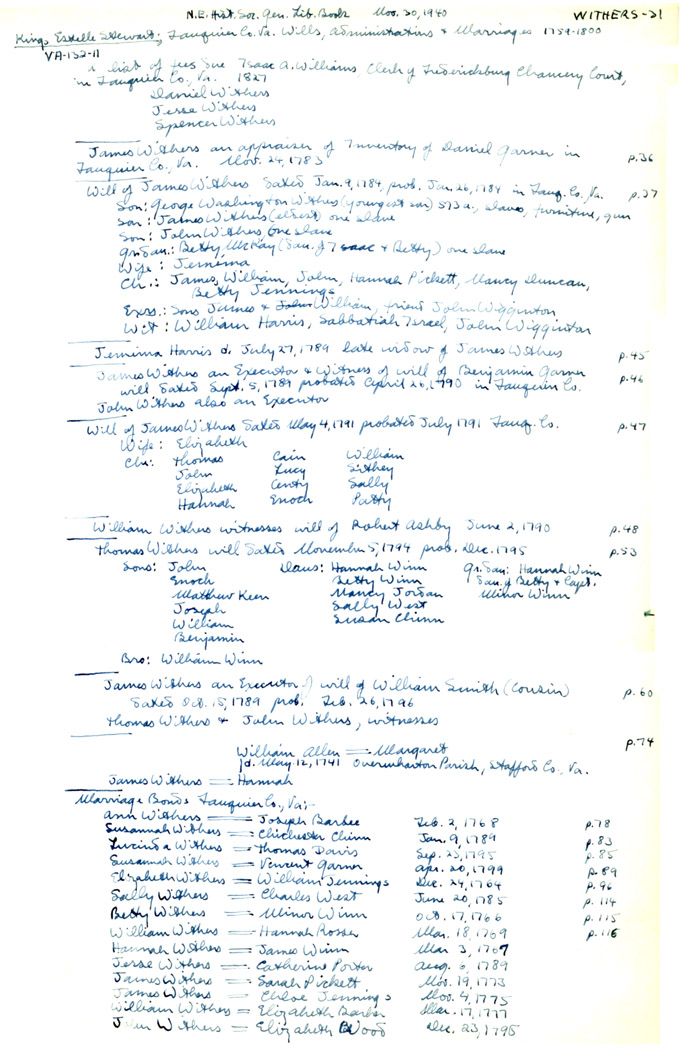 N.E. Hist. Soc. Gen. Lib. Book Nov. 30, 1940 WITHERS-21
King, Estelle Stewart; Fauquier Co. Va. Wills, Administrations & Marriages 1759-1800
VA-132-11
A list of fees due Isaac A. Williams Clerk of Fredericksburg Chancery Court,
in Fauquier Co., Va. 1827
Daniel Withers
Jesse Withers
Spencer Withers
James Withers an appraiser of Inventory of Daniel Garner in
Fauquier Co., Va. Nov. 24, 1783 p.36
Will of James Withers dated Jan. 9, 1784, prob. Jan. 26, 1784 in Fauq. Co., Va. p.37
Son: George Washington Withers (youngest son) 573 a., slaves, furniture, gun
Son: James Withers (eldest) one slave
Son: John Withers, one slave
Gr.dau.: Betty McKay (dau. of Isaac & Betty) one slave
Wife: Jemima
Ch.: James, William, John, Hannah Pickett, Nancy Duncan,
Betty Jennings
Exrs.: Sons James & John William, friend John Wigginton
Wit: William Harris, Sabbatiah Israel, John Wigginton
Jemima Harris d. July 27, 1789 late widow of James Withers p.45
James Withers an Executor & Witness of will of Benjamin Garner
will dated Sept. 5, 1789 probated April 26, 1790 in Fauquier Co. p.46
John Withers also an Executor
Will of James Withers dated May 4, 1791 probated July 1791 Fauq. Co. p.47
Wife: Elizabeth
Ch: Thomas Cain William
John Lucy Sithey
Elizabeth Centy Sally
Hannah Enoch Patty
William Withers witnesses will of Robert Ashby June 2, 1790 p.48
Thomas Withers will dated November 5, 1794 prob. Dec. 1795 p.53
Sons: John Daus: Hannah Winn Gr.dau: Hannah Winn
Enoch Betty Winn dau. of Betty & Capt.
Matthew Keen Nancy Jordan Minor Winn
Joseph Sally West
William Susan Chinn
Benjamin
Bro: William Winn
James Withers an Executor of will of William Smith (Cousin)
dated Oct. 15, 1789 prob. Feb. 26, 1796 p.60
Thomas Withers & John Withers, witnesses
William Allen = Margaret p.74
d. May 12, 1741 Overwharton Parish, Stafford Co., Va.
James Withers = Hannah
Marriage Bonds Fauquier Co., Va:-
Ann Withers = Joseph Barbee Feb. 2, 1768 p.78
Susannah Withers = Chichester Chinn Jan. 9, 1789 p.83
Lucinda Withers = Thomas Davis Sep. 23, 1795 p.85
Susannah Withers = Vincent Garner Apr. 20, 1799 p.89
Elizabeth Withers = William Jennings Dec. 24, 1764 p.96
Sally Withers = Charles West June 20, 1785 p.114
Betty Withers = Minor Winn Oct. 17, 1766 p.115
William Withers = Hannah Rosser Mar. 18, 1769 p.116
Hannah Withers = James Winn Mar 3, 1767
Jesse Withers = Catherine Porter Aug. 6, 1789
James Withers = Sarah Pickett Nov. 19, 1773
James Withers = Chloe Jennings Nov. 4, 1775
William Withers = Elizabeth Barber Mar. 17, 1777
John Withers = Elizabeth Blood Dec. 23, 1795